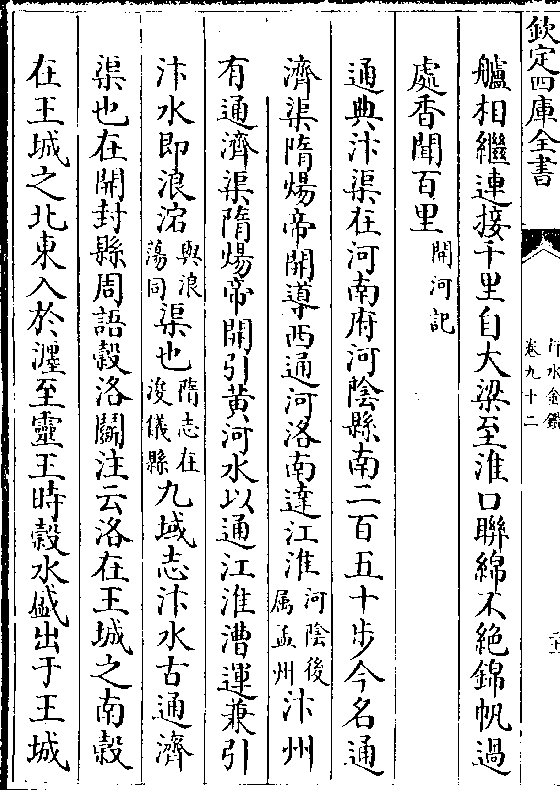 欽定四庫全書
行水金鑑
卷九十二
艫相繼連接千里自大梁至淮口聯綿不絕錦帆過
處香聞百里開河記
通典汴渠在河南府河陰縣南二百五十步今名通
濟渠隋煬帝開導西通河洛南達江淮河陰後属孟州汴州
有通濟渠隋煬帝開引黃河水以通江淮漕運兼引
汴水即浪宕與浪蕩同渠也隋志在浚儀縣九域志汴水古通濟
渠也在開封縣周語穀洛鬭注云洛在王城之南穀
在王城之北東入於瀍至靈王時穀水盛出于王城